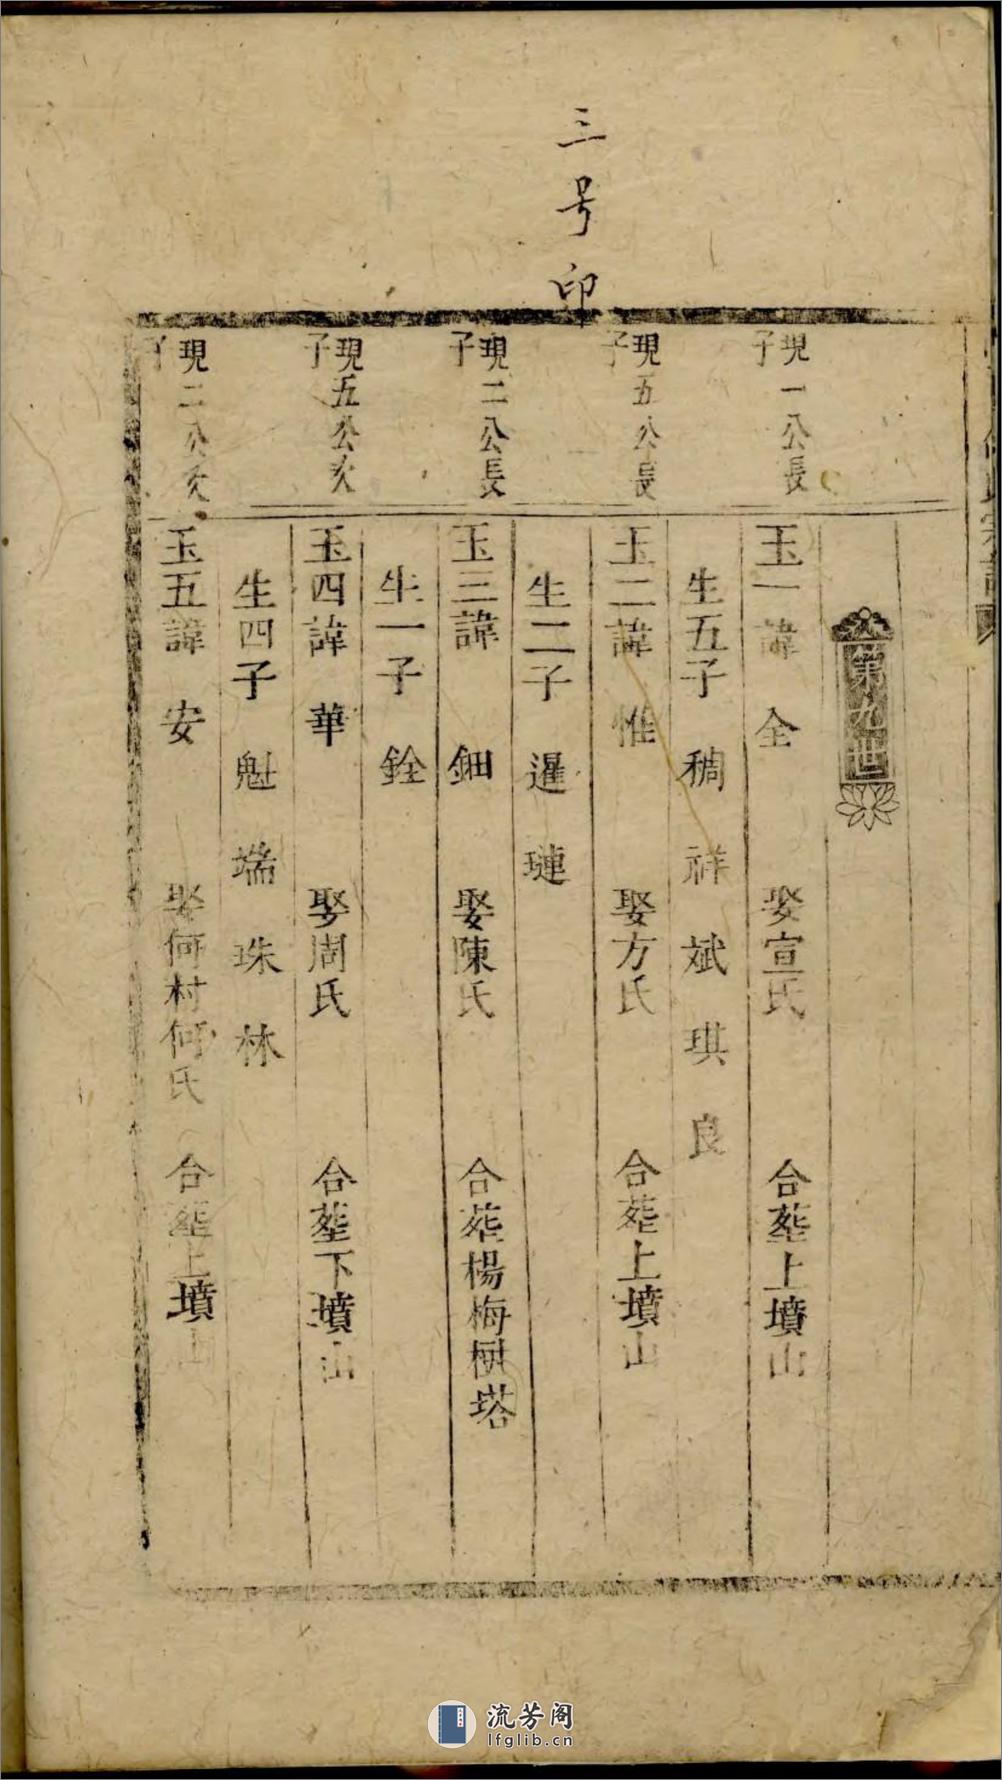 三号印
第九世
現一公長子
玉一諱全 娶宣氏 合塟上墳山
生五子 稠 祥 斌 琪 良
現五公長子
玉二諱惟 娶方氏 合塟上墳山
生二子 暹 璉
現二公長子
玉三諱鈿 娶陳氏 合塟楊梅樹塔
生一子 銓
現五公次子
玉四諱華 娶周氏 合塟下墳山
生四子 魁 端 珠 林
現二公次子
玉五諱安 娶何村何氏 合塟上墳山
流芳阁
lfglib.cn